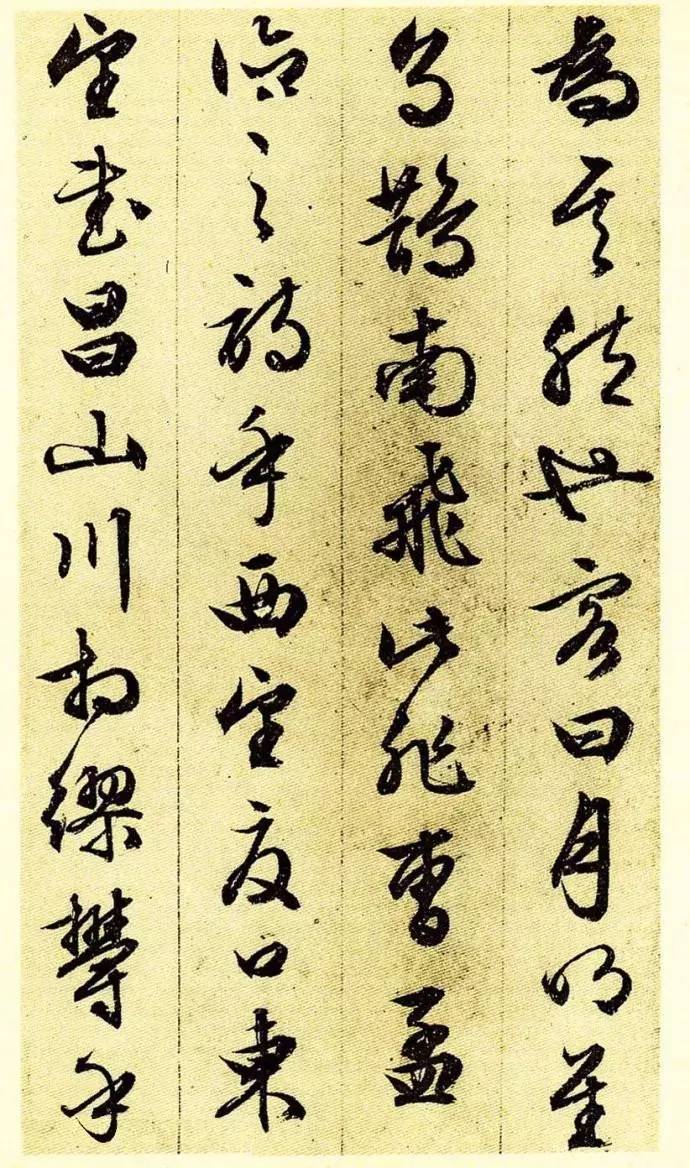 為其然也客曰月明星
烏鵲南飛此非曹孟
德之詩乎西望夏口東
望武昌山川相繆欝乎